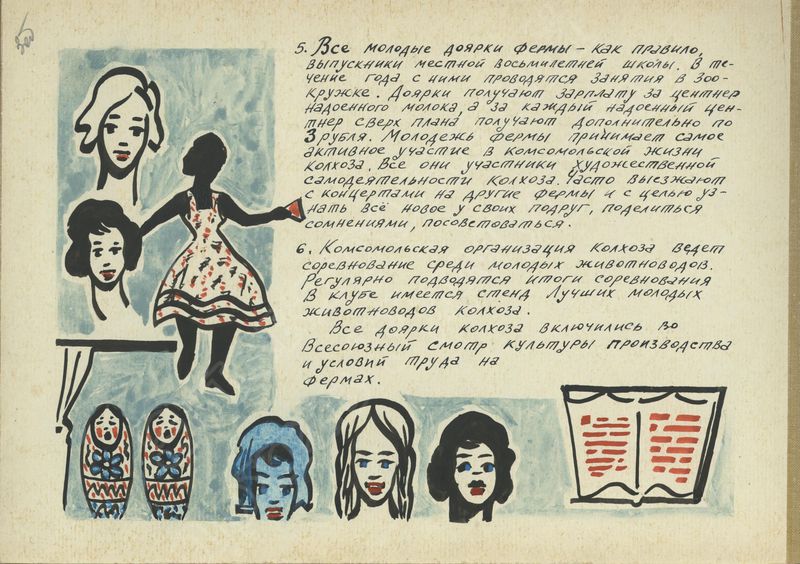 5. Все молодые доярки фермы – как правило,
выпускники местной восьмилетней школы. В те-
чение года с ними проводятся занятия в зоо-
кружке. Доярки получают зарплату за центнер
надоенного молока, а за каждый надоенный цен-
тнер сверх плана получают дополнительно по
3 рубля. Молодежь фермы принимает самое
активное участие в комсомольской жизни
колхоза. Все они участники художественной
самодеятельности колхоза. Часто выезжают
с концертами на другие фермы и с целью уз-
нать всё новое у своих подруг, поделиться
сомнениями, посоветоваться.
6. Комсомольская организация колхоза ведет
соревнование среди молодых животноводов.
Регулярно подводятся итоги соревнования
В клубе имеется стенд Лучших молодых
животноводов колхоза.
Все доярки колхоза включились во
Всесоюзный смотр культуры производства
и условий труда на
фермах.